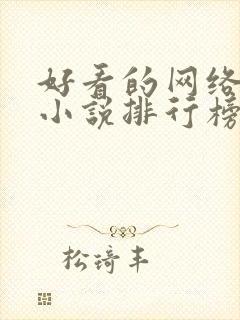 好看的网络
小说排行榜
松琦丰